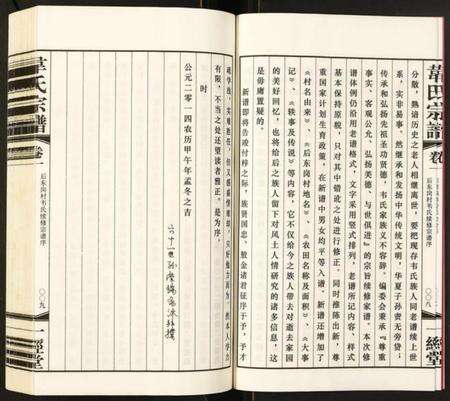 韋氏宗譜
卷
后东岗村韦氏续修宗谱序
〇〇八
一經堂
分散，熟谙历史之老人相继离世，要把现存韦氏族人同老谱续上世
系，实非易事。然继承和发扬中华传统文明，华夏子孙责无旁贷；
传承和弘扬先祖圣功贤德，韦氏家族义不容辞。编委会秉承『尊重
事实、客观公允、弘扬美德、与世俱进』的宗旨续修家谱。本次修
谱体例仍沿用老谱格式，文字采用竖式排列，老谱所记内容、样式
基本保持原貌，只对其中错讹之处进行修正。同时推陈出新，尊
重国家计划生育政策，在新谱中男女均平等入谱。新谱还增加了
《村名由来》、《后东岗村地名》、《农田名称的由来》、《大事
记》、《轶事及传说》等内容，它不仅给今之族人带去对逝去家园
的美好回忆，也将给后之族人留下对风土人情研究的诸多信息，这
是毋庸置疑的。
新谱即将告竣付梓之际，族贤国忠、敖金诸君征序于予，予才
疏学浅，
有限，不当之处还望读者雅正。是为序。
时
公元二零一四农历甲午年孟冬之吉
六十一世孙
韋氏宗譜
卷一
后东岗村韦氏续修宗谱序
〇〇九
一經堂